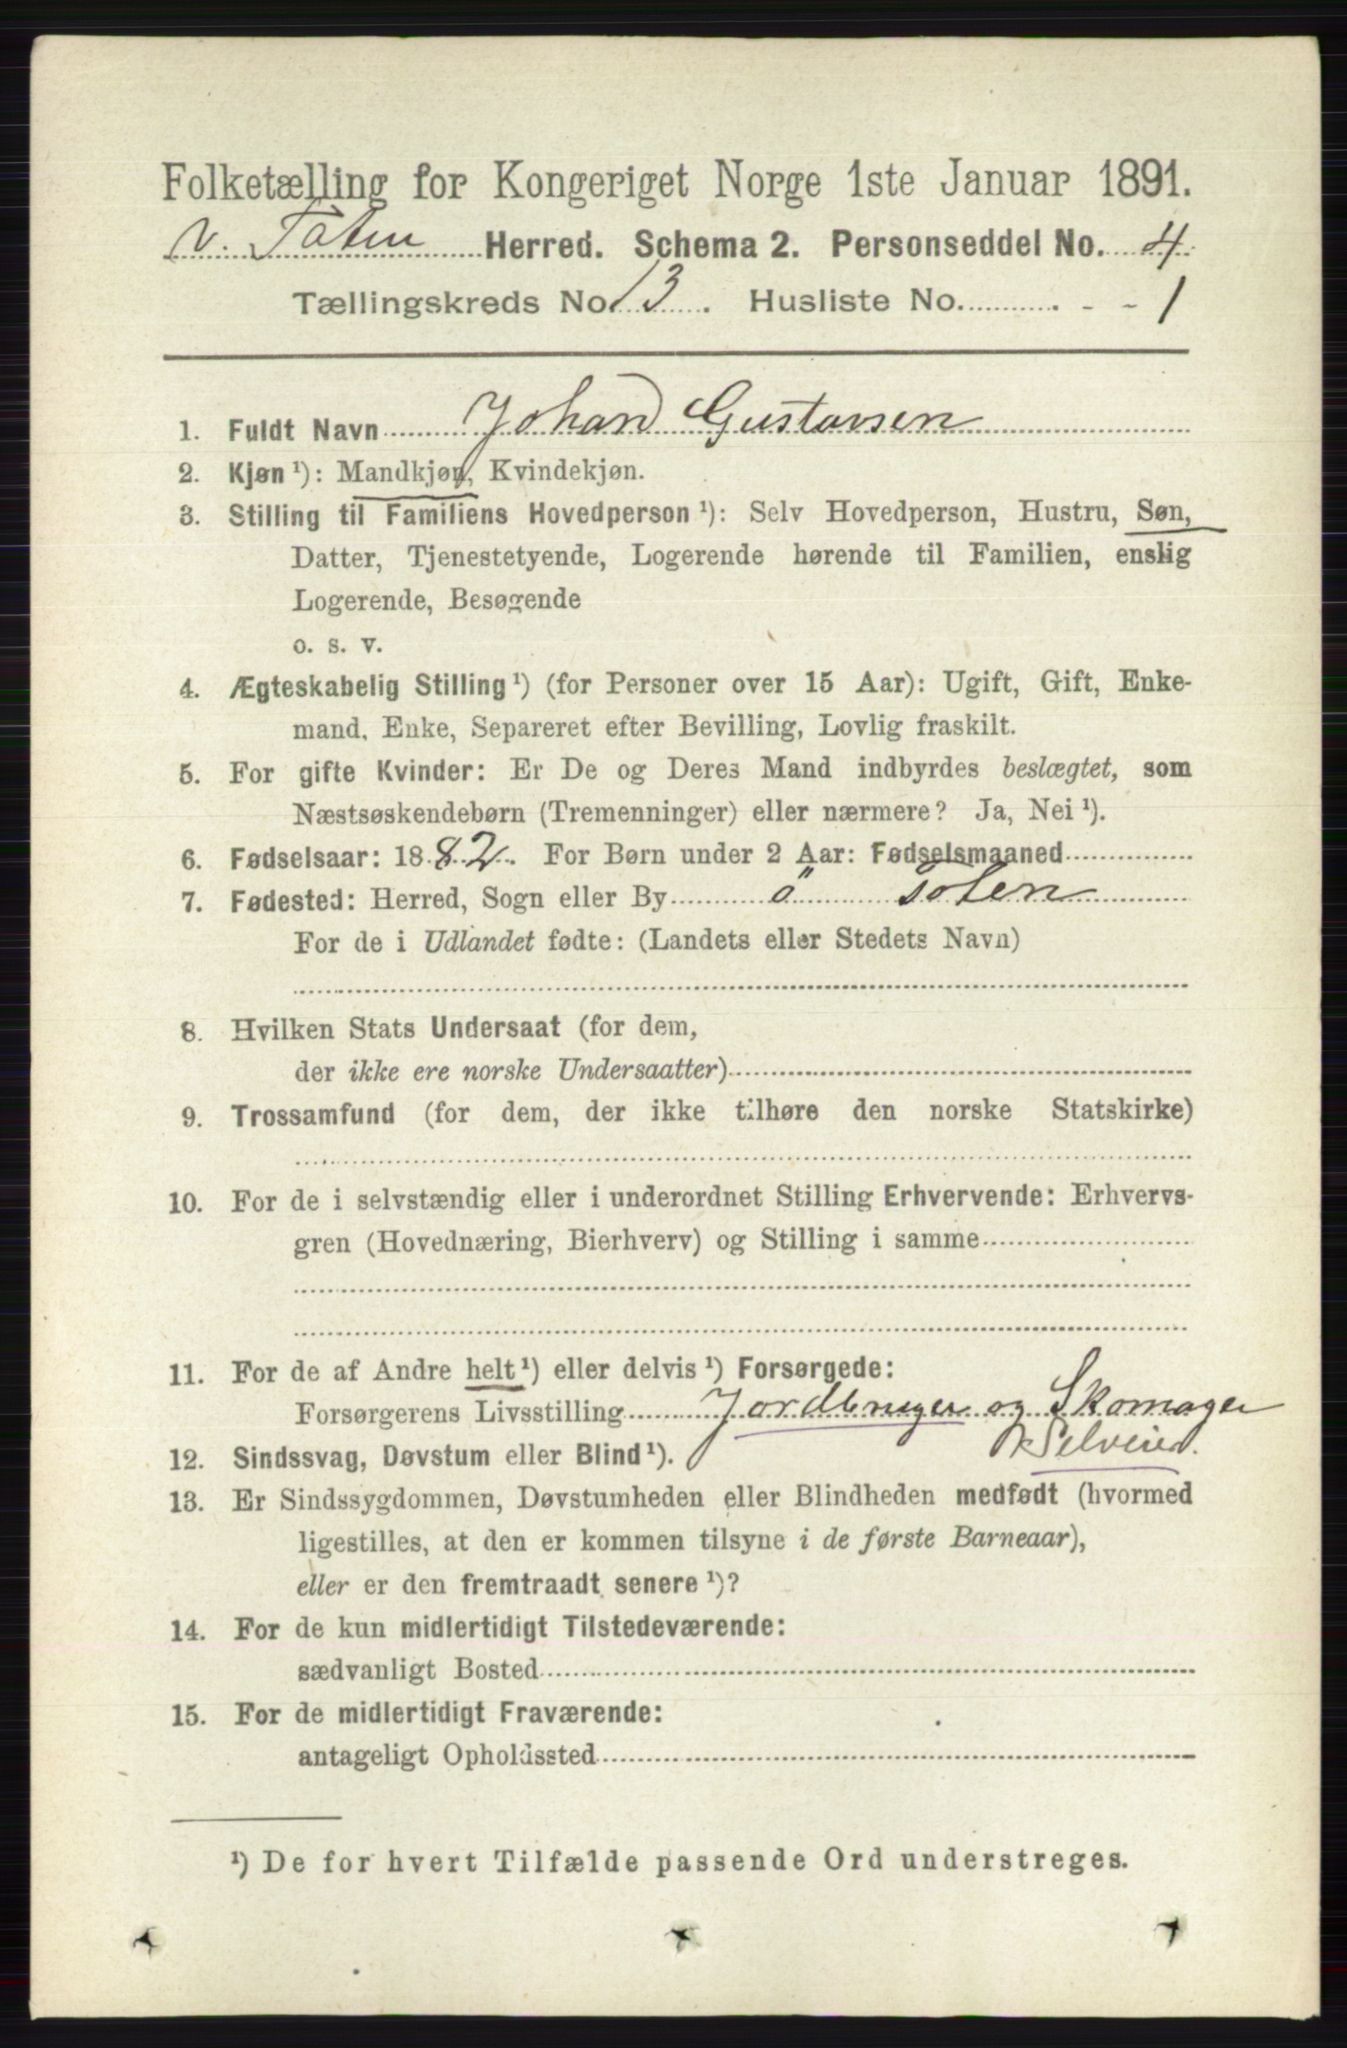 Folketælling for Kongeriget Norge 1ste Januar 1891.
V. Toten Herred. Schema 2. Personseddel No. 4
Tællingskreds No. 13. Husliste No. - - 1
1. Fuldt Navn Johan Gustavsen
2. Kjøn ¹): Mandkjøn, Kvindekjøn.
3. Stilling til Familiens Hovedperson ¹): Selv Hovedperson, Hustru, Søn,
Datter, Tjenestetyende, Logerende hørende til Familien, enslig
Logerende, Besøgende
o. s. v.
4. Ægteskabelig Stilling ¹) (for Personer over 15 Aar): Ugift, Gift, Enke-
mand, Enke, Separeret efter Bevilling, Lovlig fraskilt.
5. For gifte Kvinder: Er De og Deres Mand indbyrdes beslægtet, som
Næstsøskendebørn (Tremenninger) eller nærmere? Ja, Nei ¹).
6. Fødselsaar: 1882. For Børn under 2 Aar: Fødselsmaaned
7. Fødested: Herred, Sogn eller By ö Toten
For de i Udlandet fødte: (Landets eller Stedets Navn)
8. Hvilken Stats Undersaat (for dem,
der ikke ere norske Undersaatter)
9. Trossamfund (for dem, der ikke tilhøre den norske Statskirke)
10. For de i selvstændig eller i underordnet Stilling Erhvervende: Erhvervs-
gren (Hovednæring, Bierhverv) og Stilling i samme
11. For de af Andre helt ¹) eller delvis ¹) Forsørgede:
Forsørgerens Livsstilling Jordbruger og Skomager
Selveier.
12. Sindssvag, Døvstum eller Blind ¹).
13. Er Sindssygdommen, Døvstumheden eller Blindheden medfødt (hvormed
ligestilles, at den er kommen tilsyne i de første Barneaar),
eller er den fremtraadt senere ¹)?
14. For de kun midlertidigt Tilstedeværende:
sædvanligt Bosted
15. For de midlertidigt Fraværende:
antageligt Opholdssted
¹) De for hvert Tilfælde passende Ord understreges.